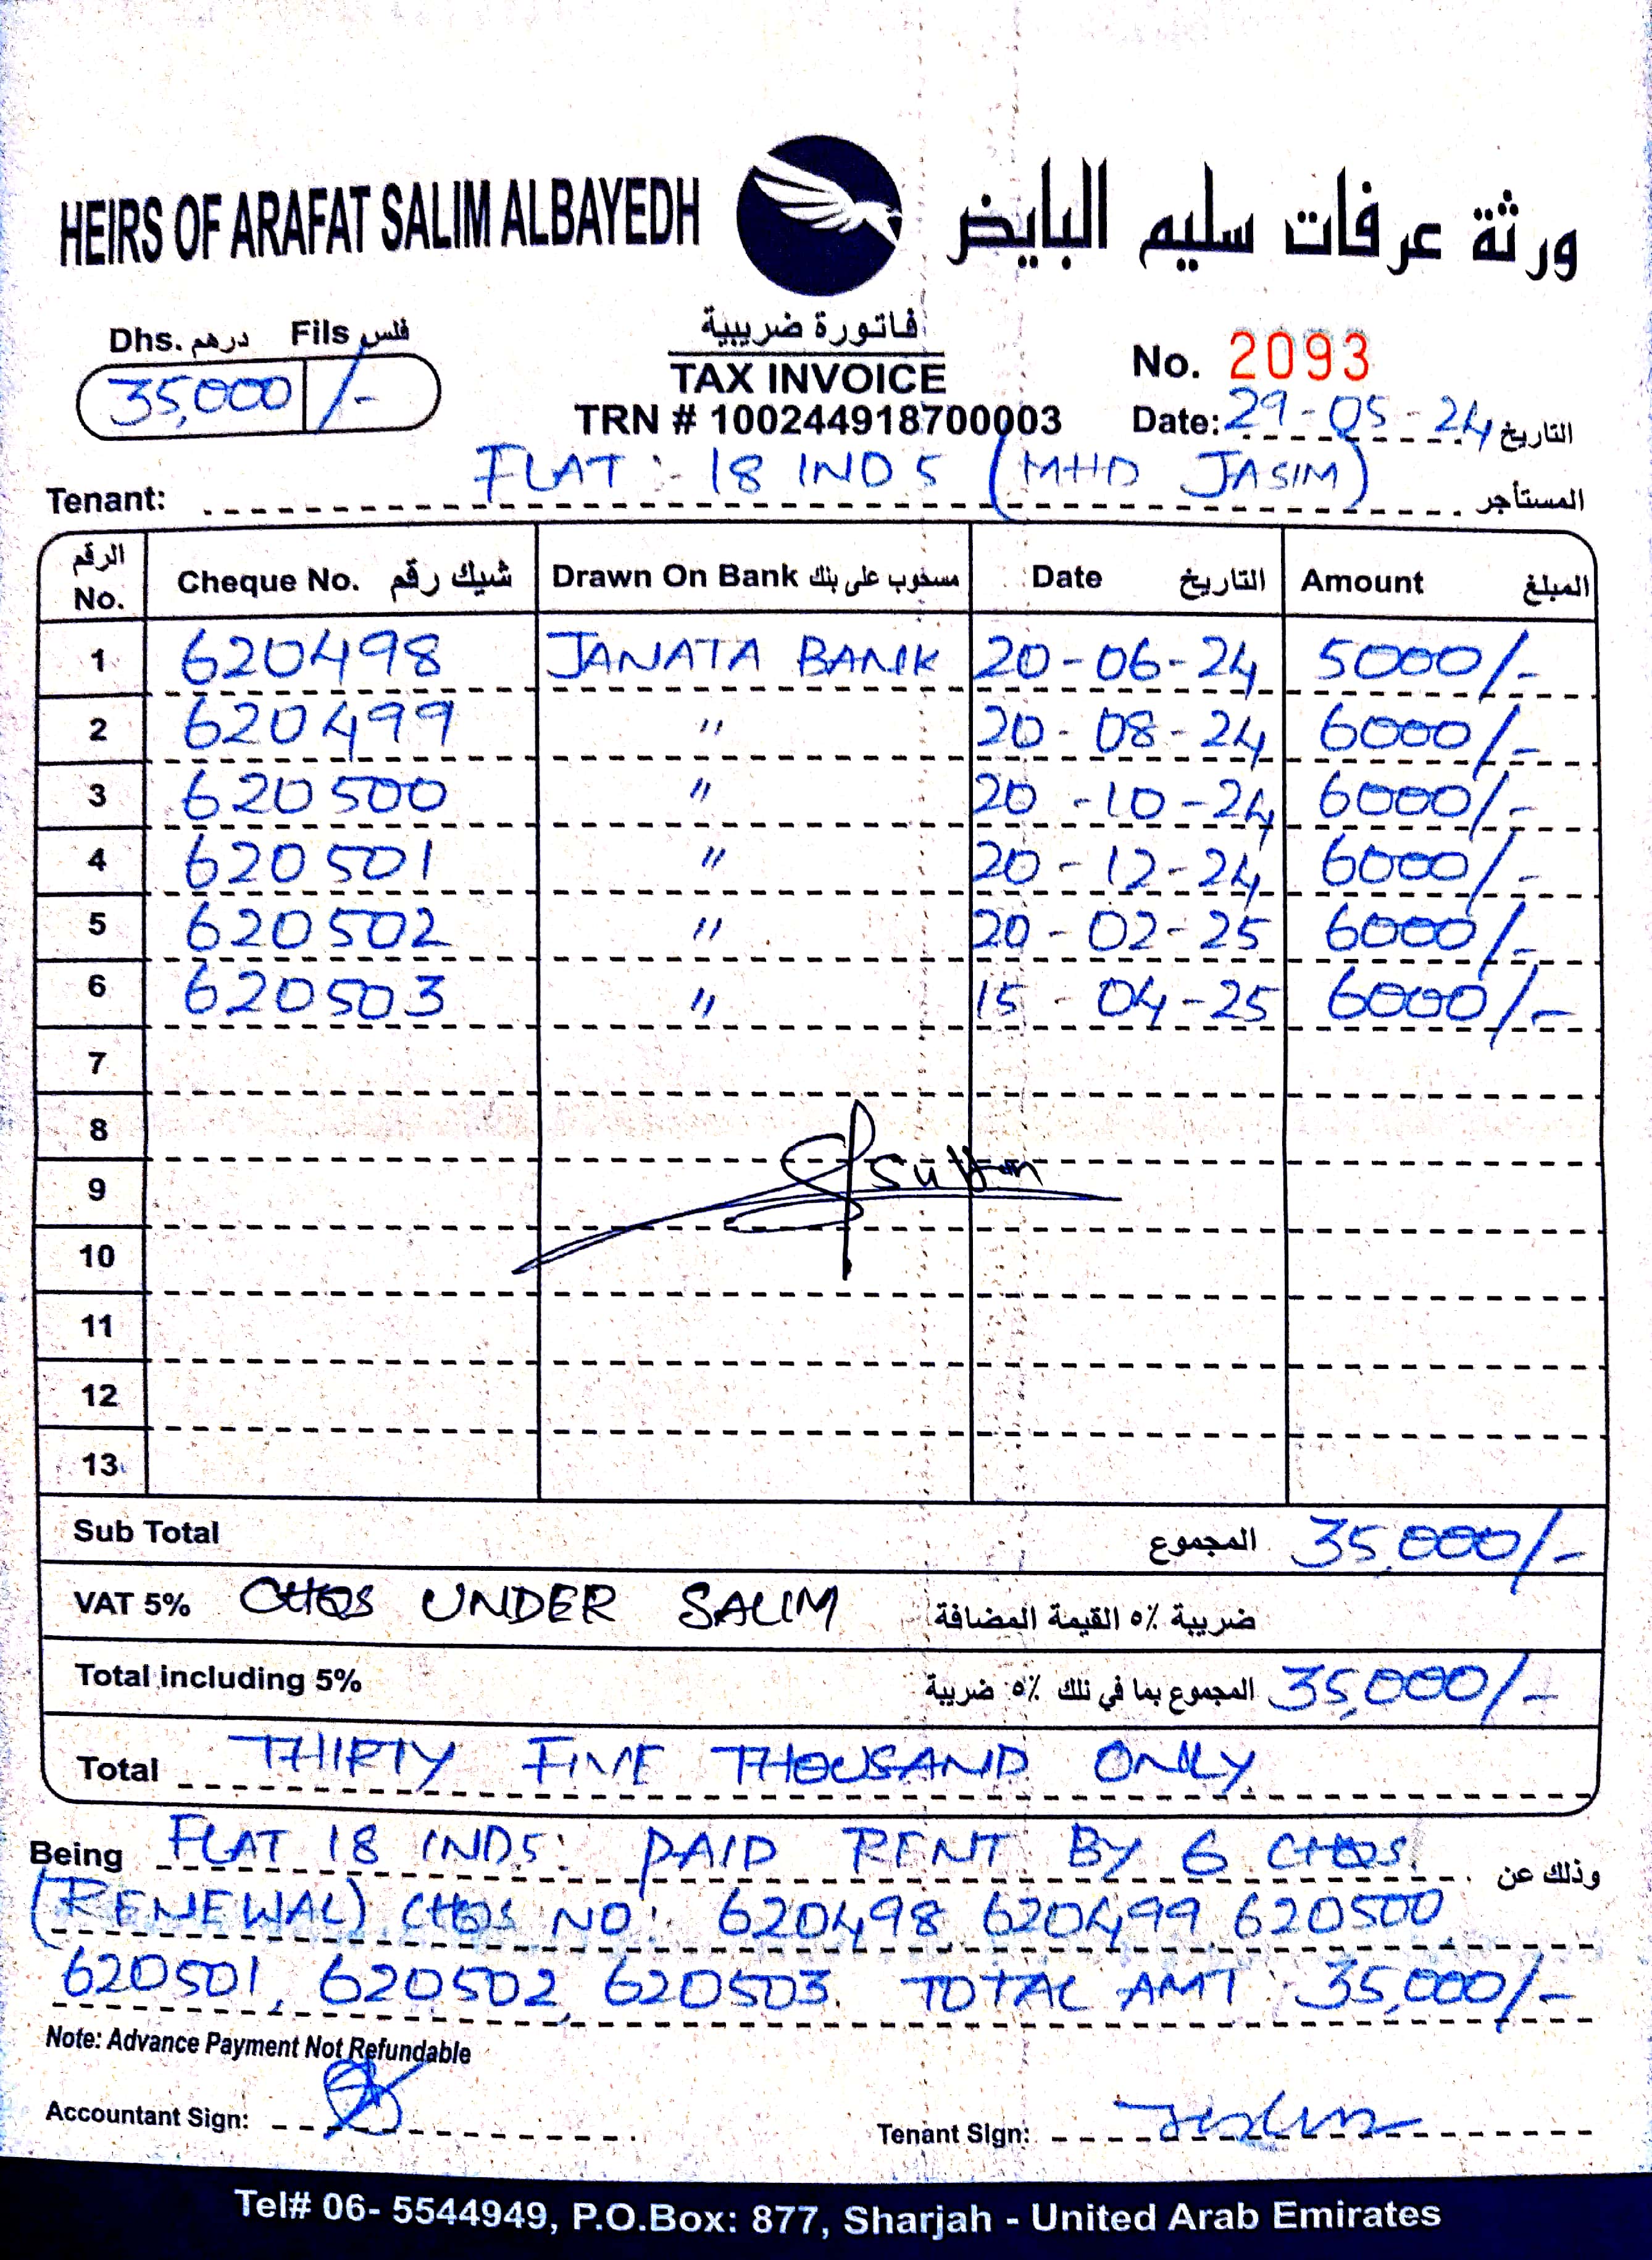 HEIRS OF ARAFAT SALIM ALBAYEDH ورثة عرفات سليم البايض
Dhs. درهم Fils فلس
35,000 /-
فاتورة ضريبية
TAX INVOICE
TRN # 100244918700003
No. 2093
Date: 29-05-24 التاريخ
Tenant: FLAT :- 18 IND 5 (MHD JASIM) المستأجر
الرقم No. Cheque No. شيك رقم Drawn On Bank مسحوب على بنك Date التاريخ Amount المبلغ
1 620498 JANATA BANK 20-06-24 5000/-
2 620499 " 20-08-24 6000/-
3 620500 " 20-10-24 6000/-
4 620501 " 20-12-24 6000/-
5 620502 " 20-02-25 6000/-
6 620503 " 15-04-25 6000/-
7
8
9
10
11
12
13
Sub Total المجموع 35,000/-
VAT 5% CHQS UNDER SALIM ضريبة ٥% القيمة المضافة
Total including 5% المجموع بما في ذلك ٥% ضريبة 35,000/-
Total THIRTY FIVE THOUSAND ONLY
Being FLAT 18 IND 5: PAID RENT BY 6 CHQS. وذلك عن
(RENEWAL) CHQS NO: 620498, 620499, 620500,
620501, 620502, 620503. TOTAL AMT: 35,000/-
Note: Advance Payment Not Refundable
Accountant Sign:
Tenant Sign:
Tel# 06- 5544949, P.O.Box: 877, Sharjah - United Arab Emirates